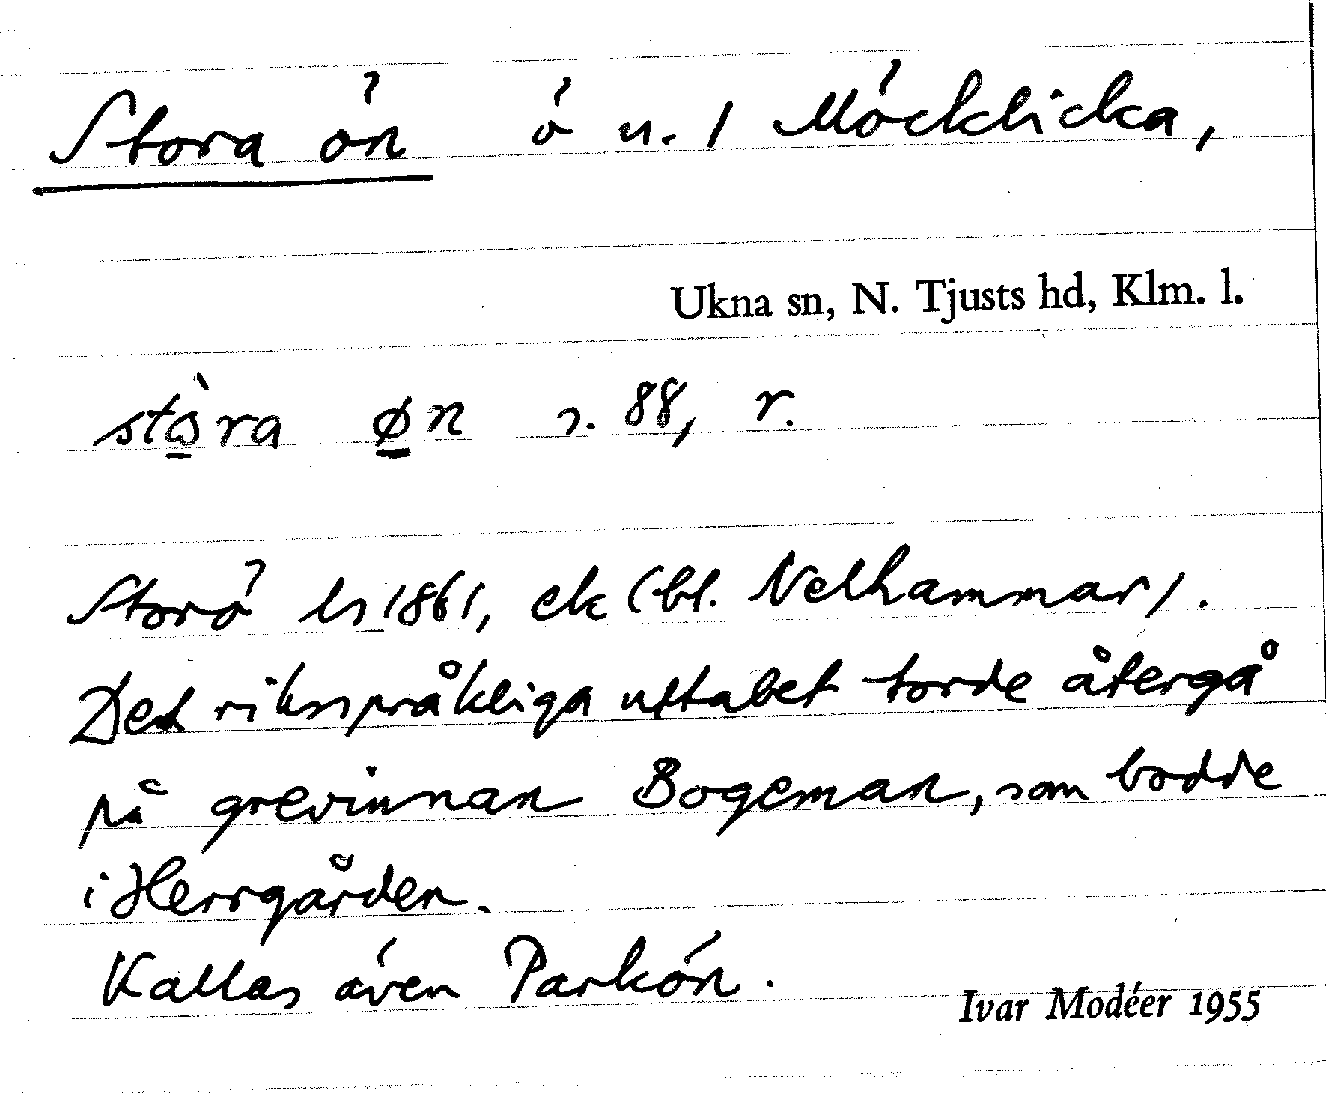 Stora ön ö u. / Möcklicka,
Ukna sn, N. Tjusts hd, Klm. l.
stò̱ra ø̱n s. 88, r.
Storö ls 1861, ek (bl. Nelhammar).
Det rikspråkliga uttalet torde återgå
på grevinnan Bogeman, som bodde
i Herrgården.
Kallas även Parkön.
Ivar Modéer 1955